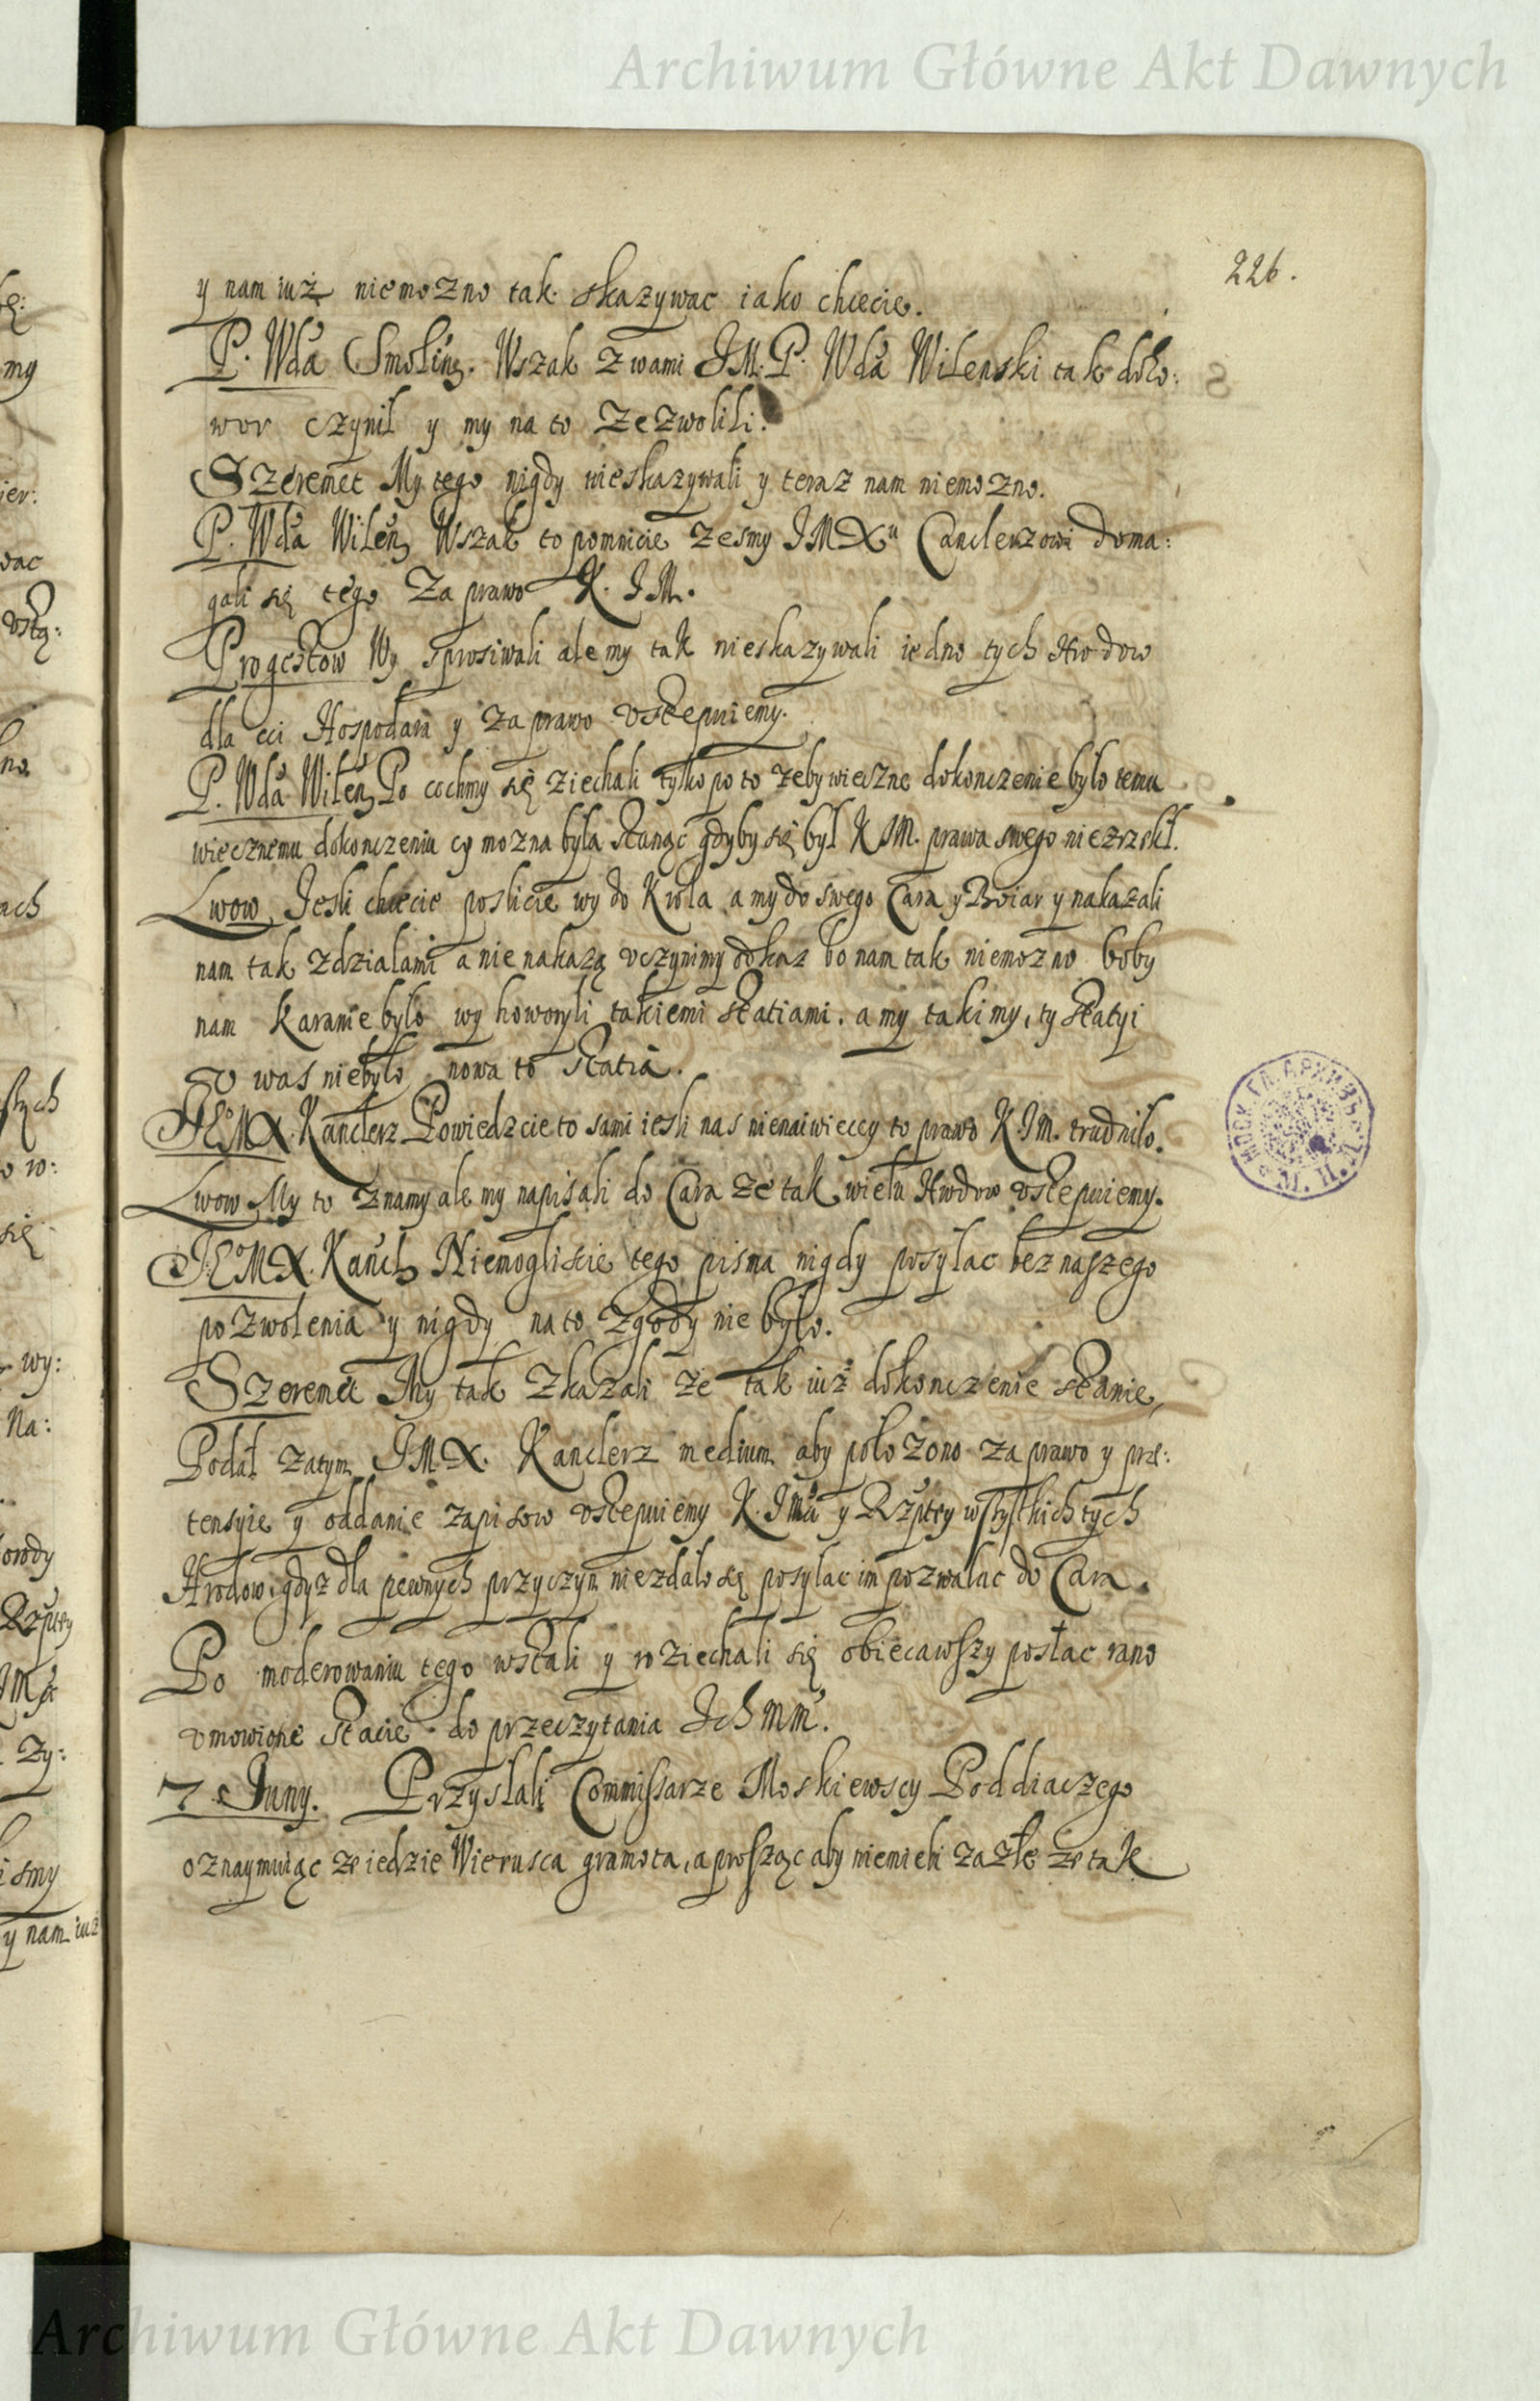 Archiwum Główne Akt Dawnych
226.
y nam iuż niemozno tak skazywac iako chcecie.
P. Wda Smoling. Wszak z wami JM. P. Wda Wilenski tak doko:
wor czynil y my na to zezwolili.
Szeremet My tego nigdy nieskazywali y teraz nam niemozno.
P. Wda Wilen Wszak to pomnicie zesmy JMXu Canclerzowi doma:
gali się tego za prawo K. JM.
Progestow Wy sprosiwali ale my tak nieskazywali iedno tych Hrodow
dla eci Hospodara y za prawo vstepuiemy.
P. Wda Wilen Po cochmy się ziechali tylko po to zeby wieczne dokonczenie bylo temu
wiecznemu dokonczeniu cy mozna byla stanąc gdyby się byl K JM. prawa swego niezrzekl.
Lwow Jesli chcecie poslicie wy do Krola a my do swego Cara y Boiar y nakazali
nam tak zdzialami a nie nakazą vczynimy odkaz bo nam tak niemozno boby
nam karanie bylo wy howoryli takiemi statiami. a my takimy, ty statyi
v was niebylo nowa to statia.
JEoMX. Kanclerz Powiedzcie to sami iesli nas nienaiwiecey to prawo K. Jm. trudnilo.
Lwow My to znamy ale my napisali do Cara ze tak wielu Hrodow vstepuiemy.
JEoMX. Kancl Niemogliscie tego pisma nigdy posylac bez naszego
pozwolenia y nigdy na to zgody nie bylo.
Szeremet My tak zkazali ze tak iuż dokonczenie stanie,
Podał zatym JMX. Kanclerz medium aby polożono za prawo y prę:
tensyie y oddanie zapisow vstepuiemy K. Jmci y Rzptey wszystkich tych
Hrodow, gdyz dla pewnych przyczyn niezdalo się posylac im pozwalac do Cara.
Po moderowaniu tego wstali y roziechali się obiecawszy posłac rano
vmowione stacie do przeczytania Jch Mm.
7 Juny. Przyslali Commissarze Moskiewscy Poddiaczego
oznaymuiąc ze iedzie Wierusca gramota, a prosząc aby niemieli za złe ze tak
Archiwum Główne Akt Dawnych